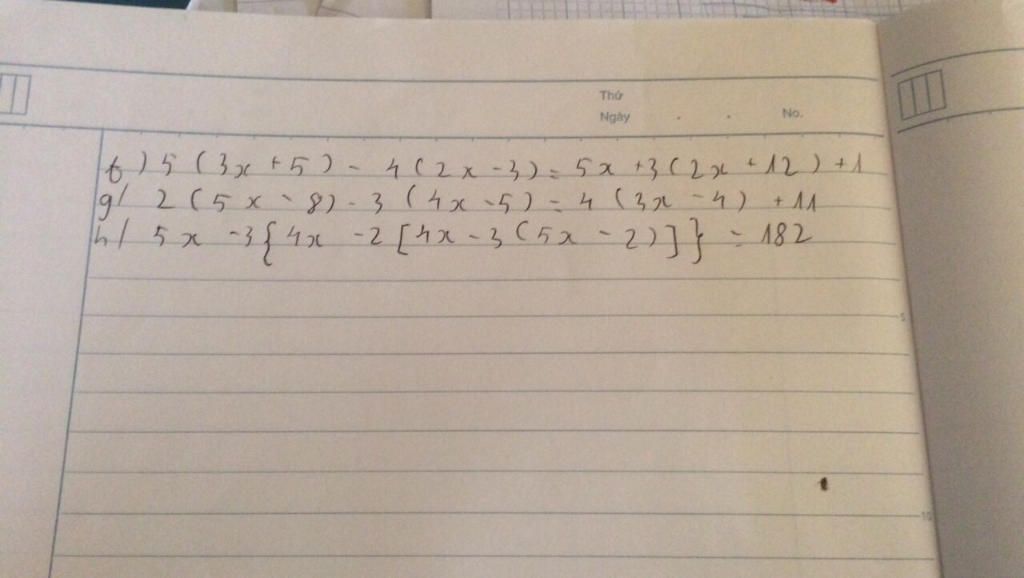 Thứ
Ngày . . No.
f) 5 (3x + 5) - 4 (2x - 3) = 5x + 3 (2x + 12) + 1
g/ 2 (5x - 8) - 3 (4x - 5) = 4 (3x - 4) + 11
h/ 5x - 3{4x - 2[4x - 3(5x - 2)]} = 182
5
10